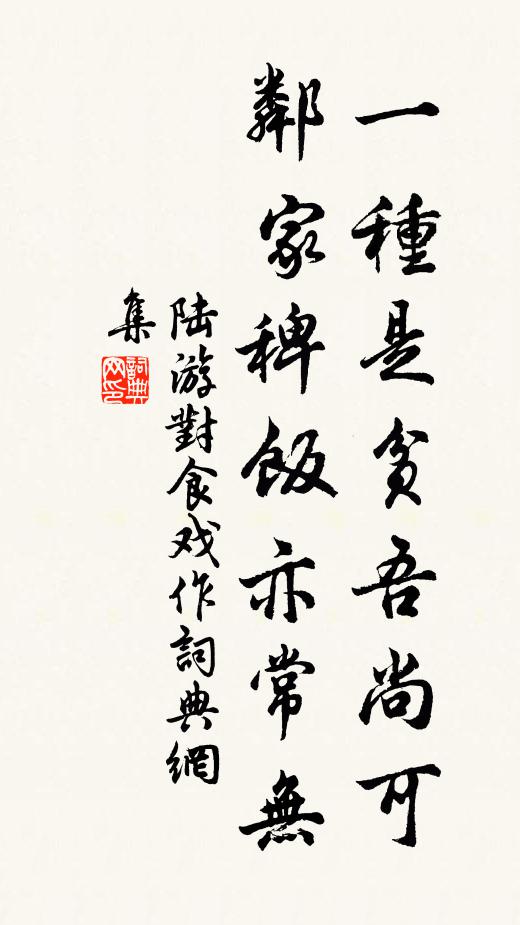 一種是貧吾尚可
鄰家稗飯亦常無
陸游對食戏作詞典網
集
詞典网印